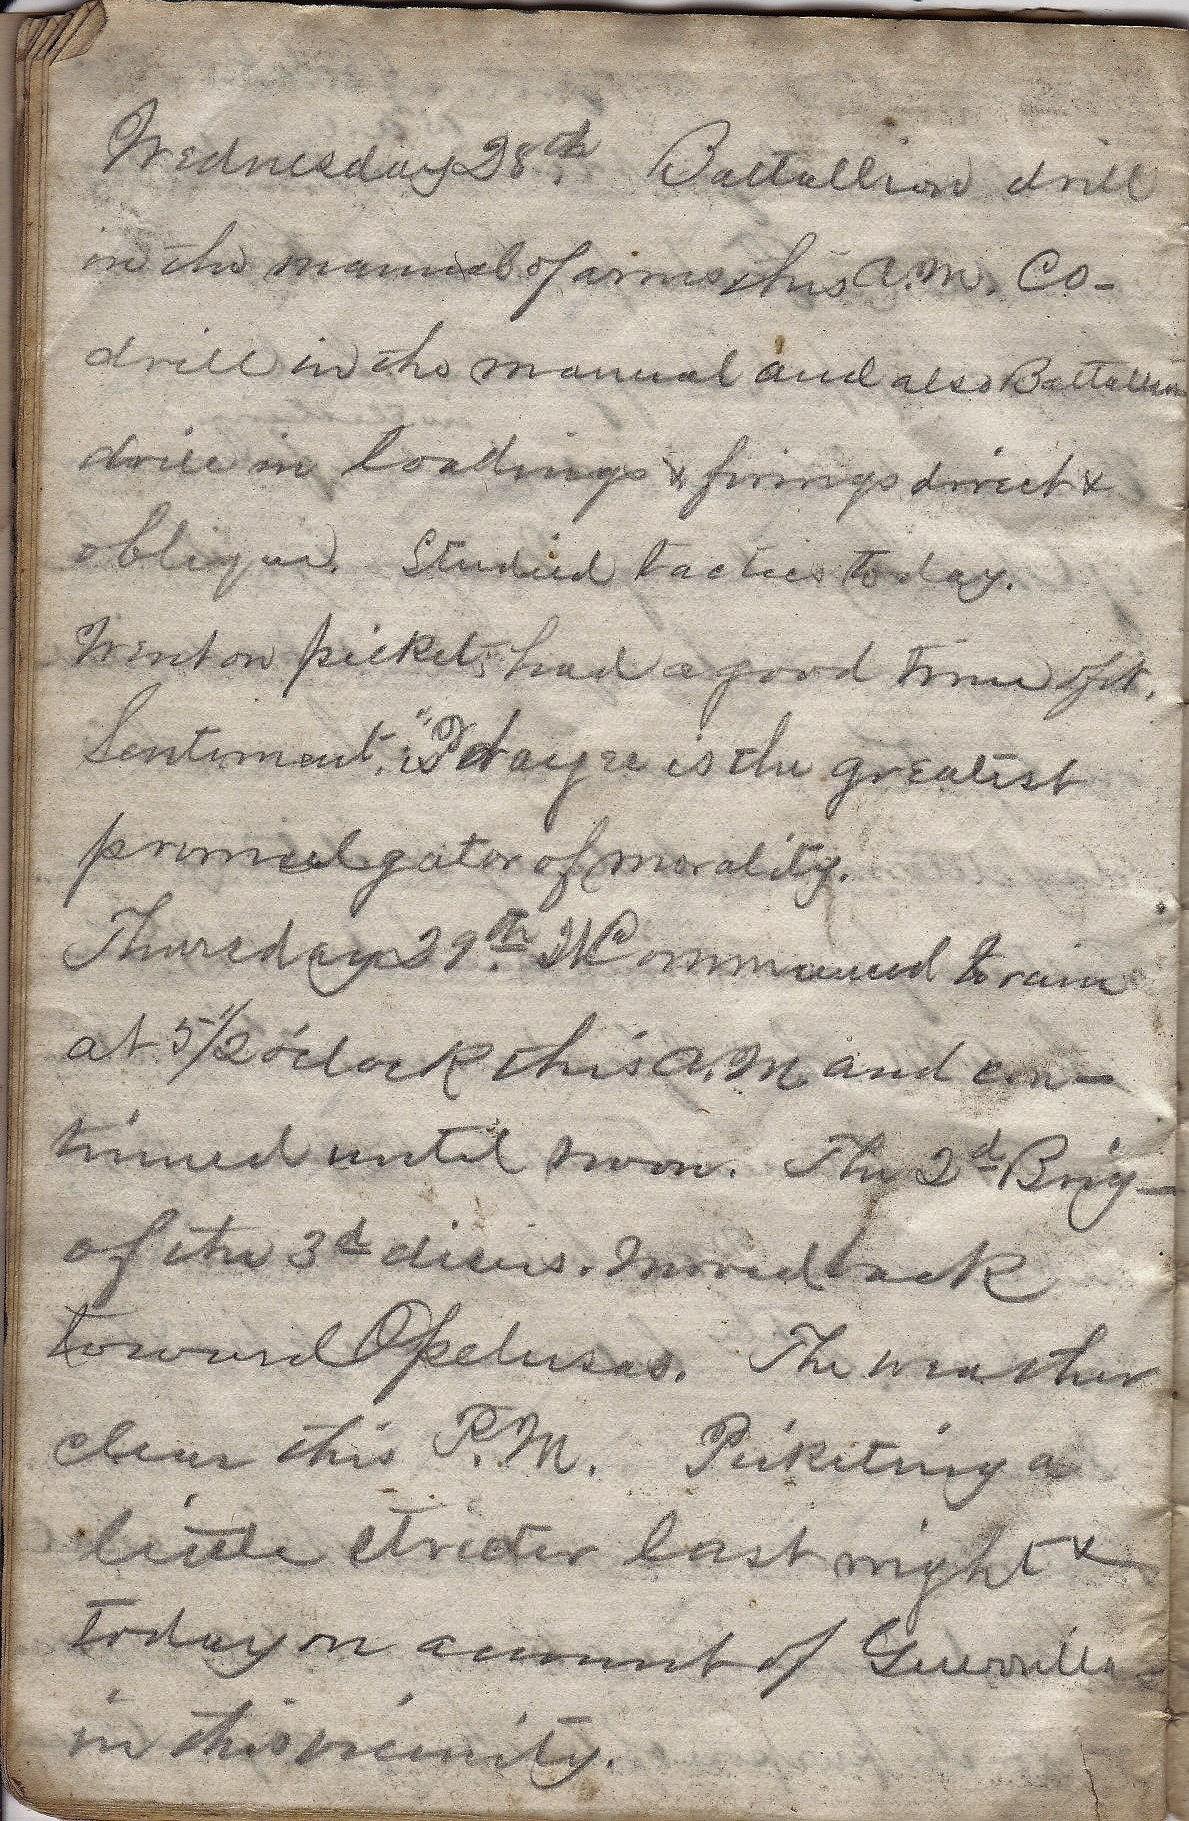 Wednesday 28th. Battallion drill
in the manual of arms this A.M. Co-
drill in the manual and also Battallion
drill in loadings & firings direct &
oblique. Studied tactics today.
Went on picket, had a good time of it.
Sentiment, is the greatest
promulgator of morality.
Thursday 29th. It Commenced to rain
at 5 1/2 o'clock this A.M. and con-
tinued until noon. The 2d Brig-
of the 3d divis. moved back
toward Opelusas. The weather
clear this P.M. Picketing a
little stricter last night &
today on account of Guerrillas
in this vicinity.